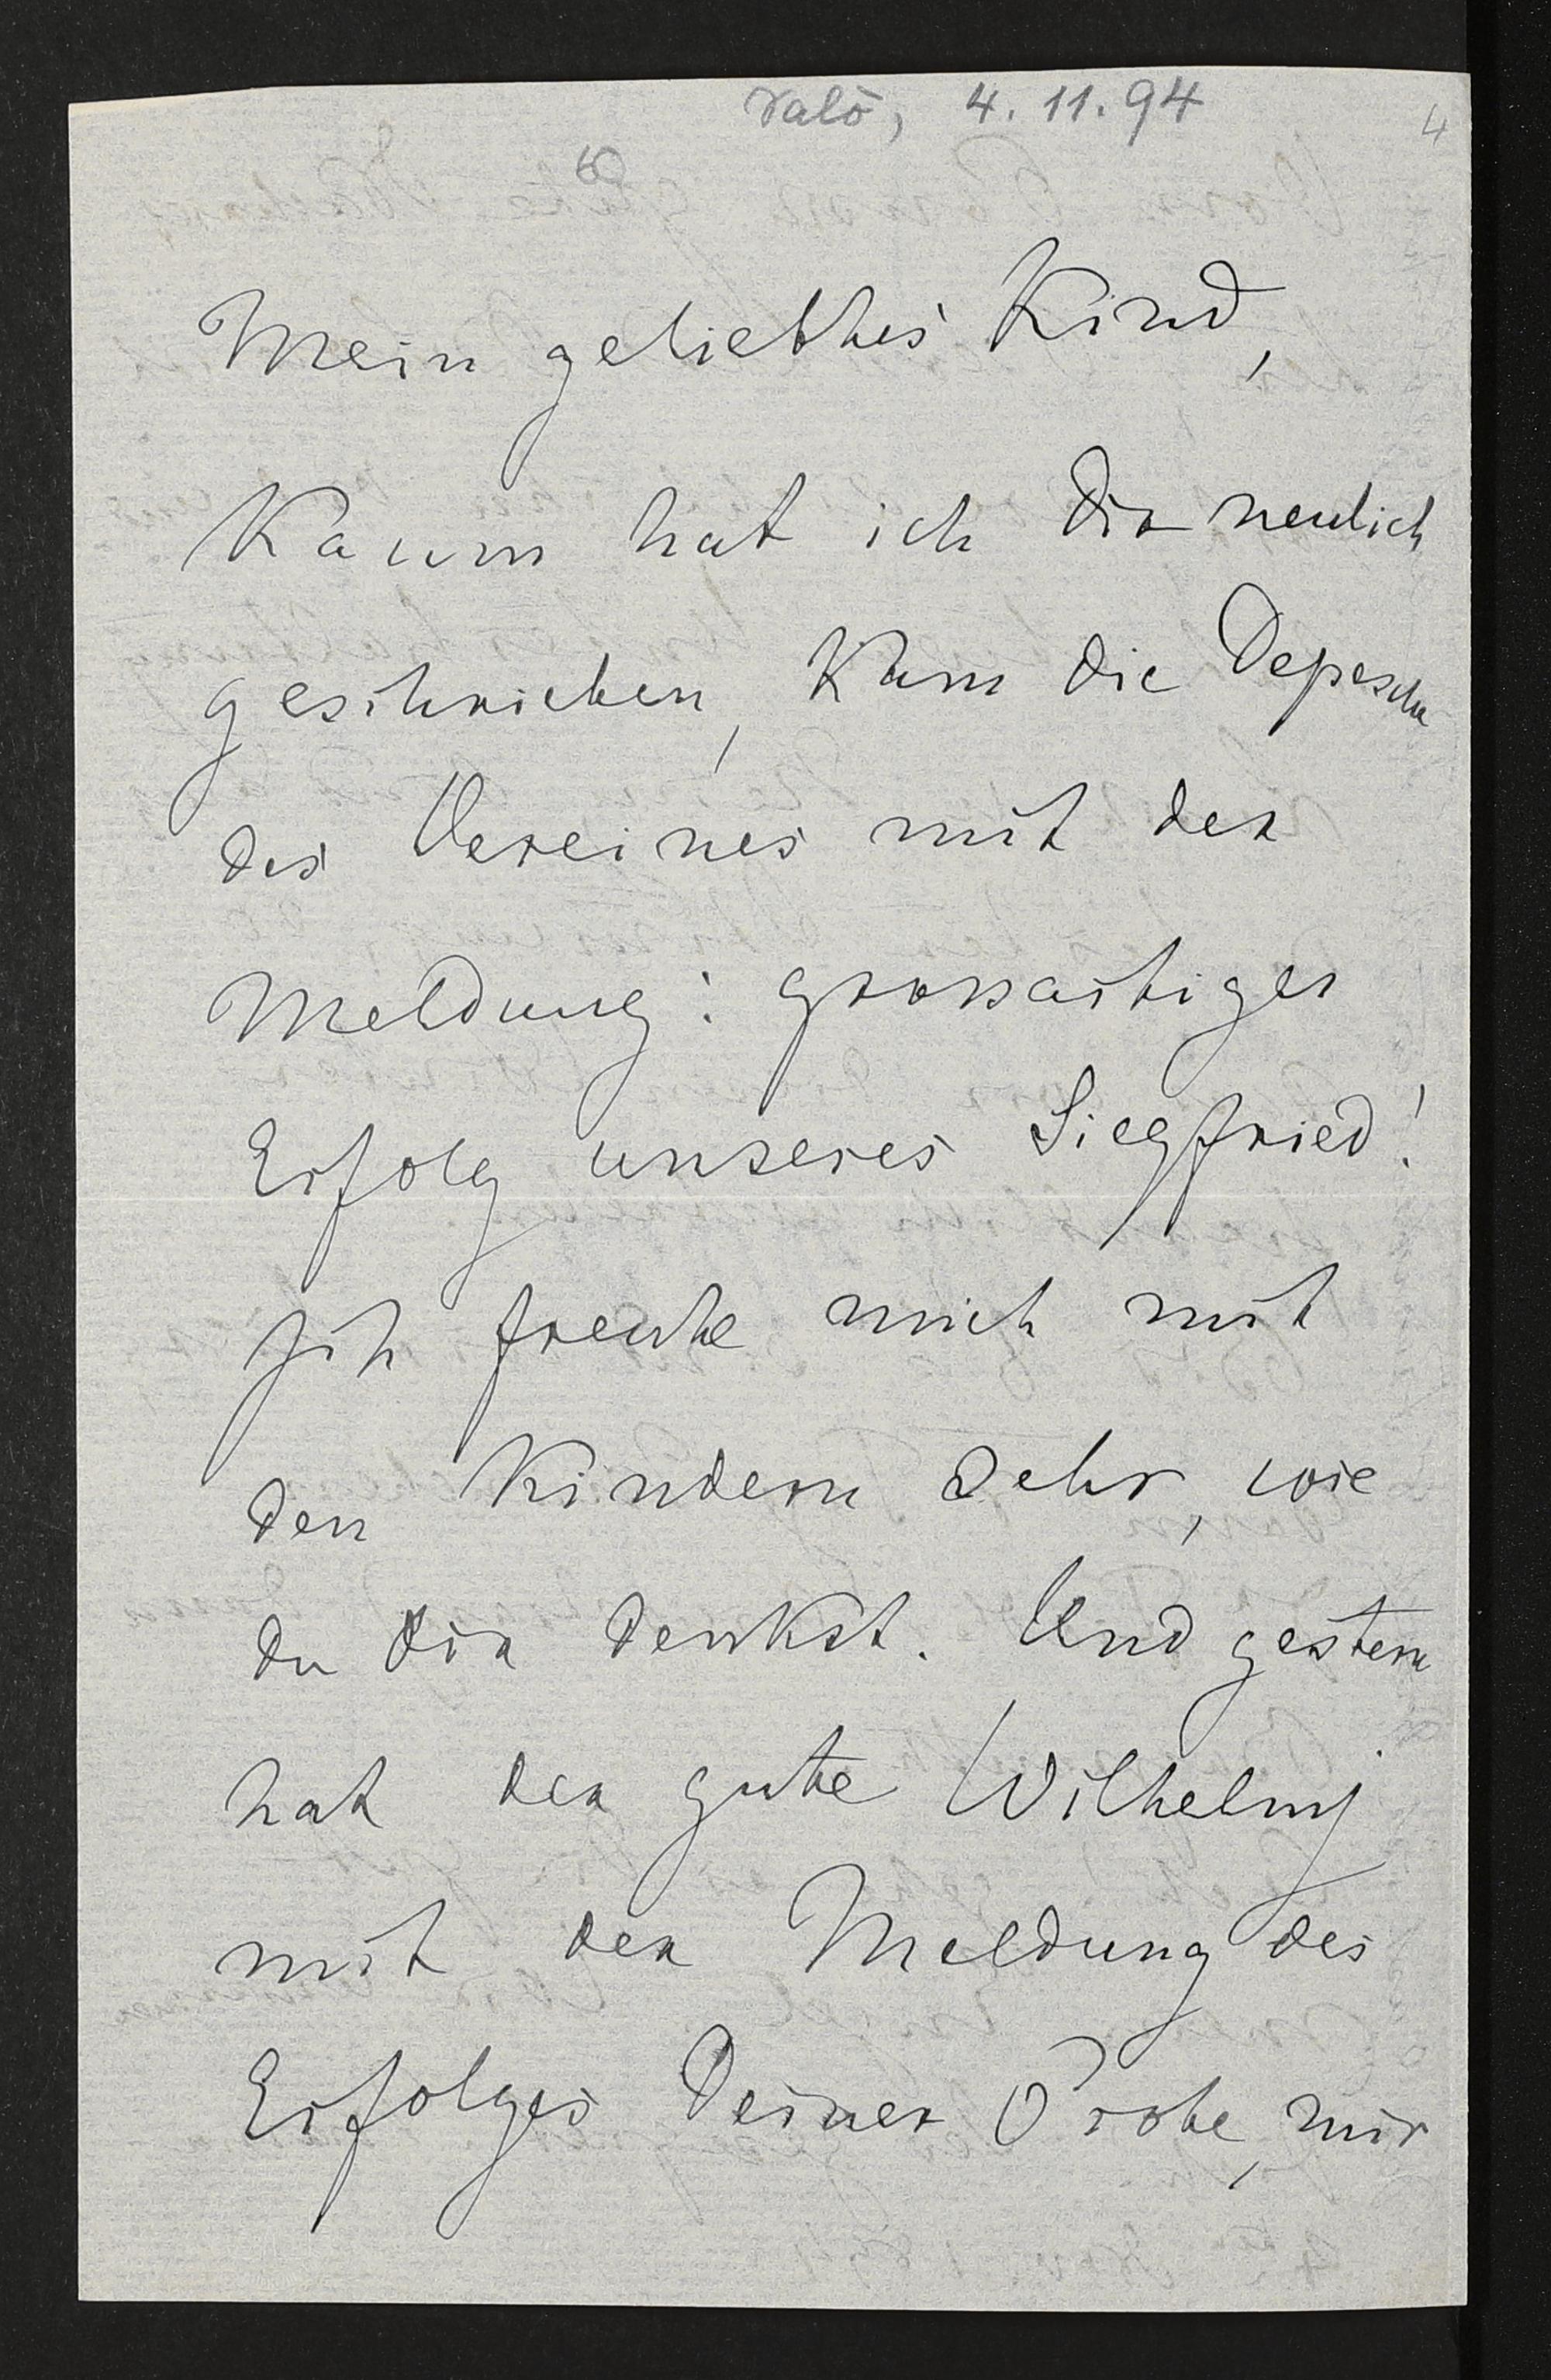 Salò, 4. 11. 94
4
Mein geliebtes Kind,
Kaum hat ich dir neulich
geschrieben, kam die Depesche
des Vereines mit der
Meldung: grossartiger
Erfolg unseres Siegfried!
Ich freute mich mit
den Kindern sehr, wie
du dir denkst. Und gestern
hat der gute Wilhelmj
mit der Meldung des
Erfolges Deiner Probe, mir